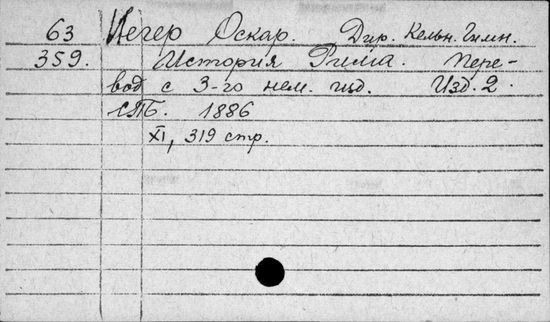 63 Іегер Оскар. Дир. Кельн. Гимн.
359. Исторія Рима. Пере-
вод с 3-го нем. изд. Изд. 2.
СПБ. 1886
XI, 319 стр.